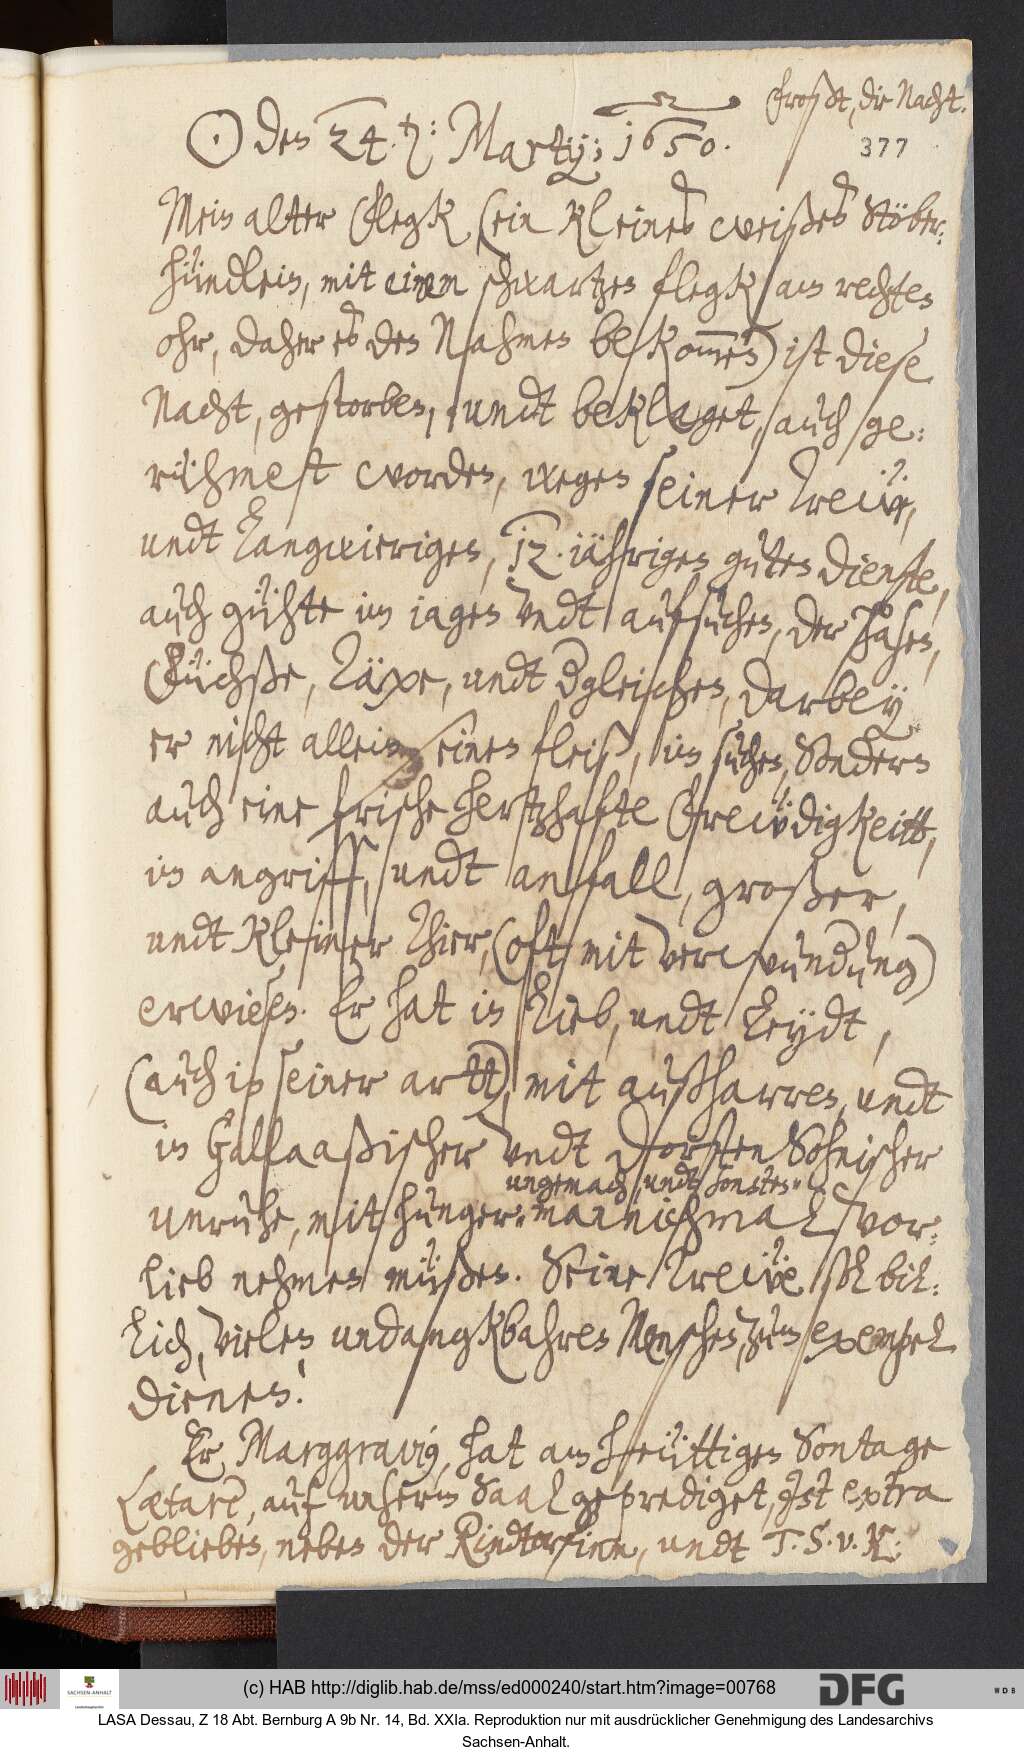 Frost, die Nacht.
377
☉ den 24. ten: Martij; 1650.
Mein alter Flegk (ein kleines weißes Stöber:
hündlein, mit einem schwartzen flegk am rechten
ohr, daher es den Nahmen bekommen) ist diese
Nacht, gestorben, undt beklaget, auch ge:
rühmet worden, wegen seiner Treüe,
undt langwierigen, 12. iährigen guten dienste,
auch gühte im iagen vndt aufsuchen, der Hasen,
Füchße, Täxe, undt dgleichen, darbey
er nicht allein einen fleiß, im suchen, Sondern
auch eine frische hertzhafte Frewdigkeitt,
im angriff, undt anfall, großer,
undt kleiner Thier, (oft mit verwundung)
erwiesen. Er hat in Lieb, undt Leydt,
(auch in seiner artt) mit außharren, undt
in Gallaaßischer vndt Dorstensohnischer
ungemach, undt sonsten
unruhe, mit hunger mannichmal vor:
lieb nehmen müßen. Seine Treüe soll bil:
lich, vielen undangkbahren Menschen, zum exempel
dienen.
Er, Marggravius, hat am heüttigen Sontage
Lætare, auf unserm Saal geprediget, Jst extra
geblieben, neben der Rindtorfinn, undt T. S. v. K:
(c) HAB http://diglib.hab.de/mss/ed000240/start.htm?image=00768
SACHSEN-ANHALT
DFG
WDB
LASA Dessau, Z 18 Abt. Bernburg A 9b Nr. 14, Bd. XXIa. Reproduktion nur mit ausdrücklicher Genehmigung des Landesarchivs
Sachsen-Anhalt.